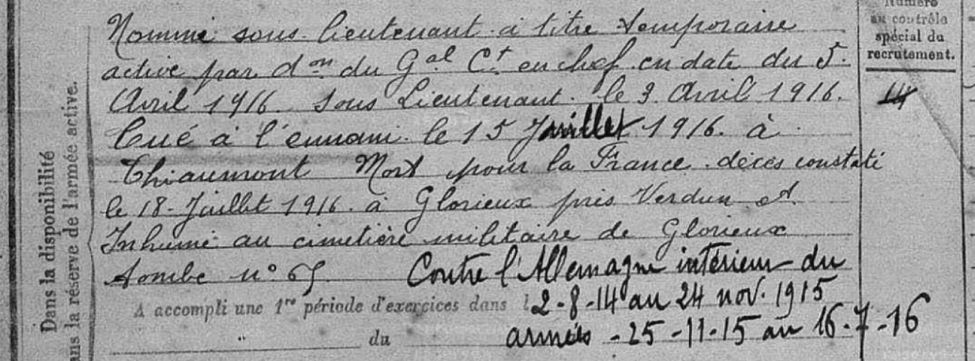 Nommé sous-lieutenant à titre temporaire
active par don du Gal Ct en chef en date du 5.
Avril 1916. Sous Lieutenant le 3 Avril 1916.
Tué à l'ennemi le 15 Juillet 1916. à
Thiaumont Mort pour la France décès constaté
le 18 Juillet 1916 à Glorieux près Verdun et
Inhumé au cimetière militaire de Glorieux
tombe n° 65 Contre l'Allemagne intérieur du
A accompli une 1re période d'exercices dans l 2-8-14 au 24 nov. 1915
du armées - 25-11-15 au 16-7-16
Dans la disponibilité
ans la réserve de l'armée active.
Numéro
au contrôle
spécial du
recrutement.